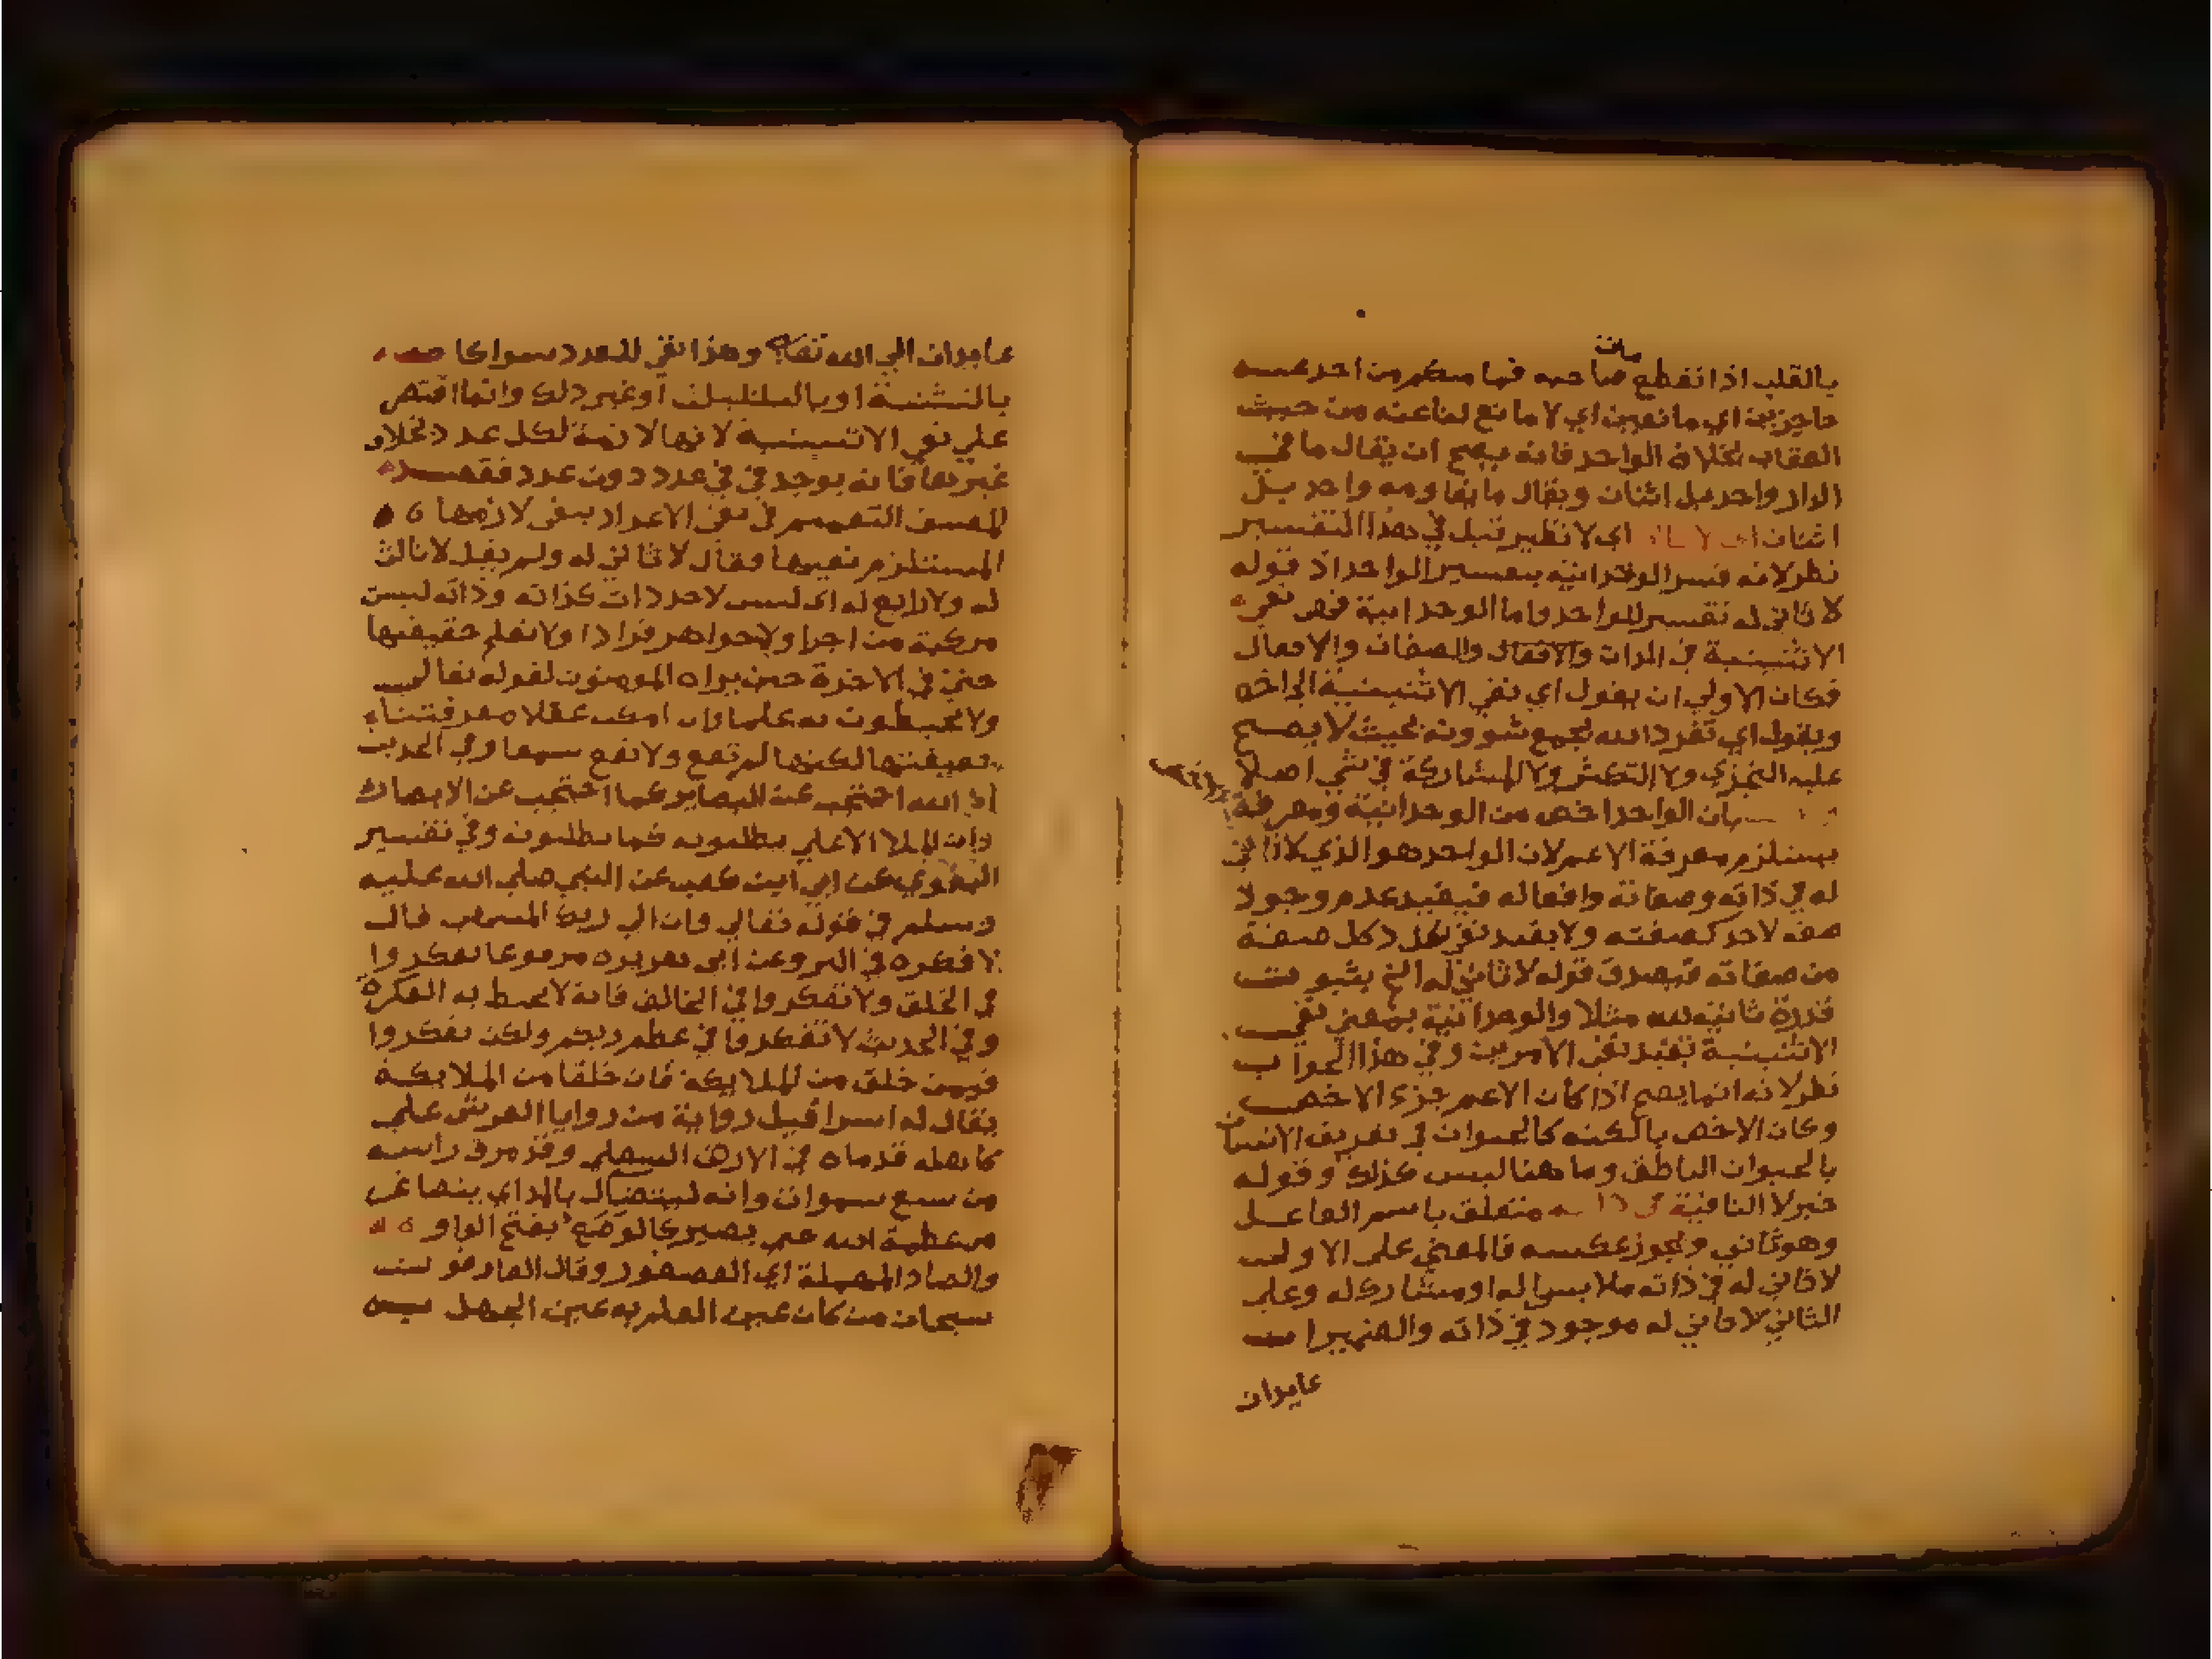 مات
بالقلب اذا نقطع صاحبه فما منكم من احد عنه
حاجزين اي مانعين اي لا مانع لنا عنه من حيث
العقاب بخلاف الواحد فانه يصح ان يقال ما في
الدار واحد بل اثنان ويقال ما يقاومه واحد بل
اثنان اي لا نظير قيل في هذا التفسير
نظر لانه فسر الوحدانية بتفسير الواحد اذ قوله
لا ثاني له تفسير للواحد واما الوحدانية فهي نفي
الاثنينية في الذات والافعال والصفات والافعال
فكان الاولي ان يقول اي نفي الاثنينية الي اخره
ويقول اي تفرد الله بجميع شوونه بحيث لا يصح
عليه التجزي ولا التكثر ولا المشاركة في شي اصلا
بان الواحد اخص من الوحدانية ومعرفة
يستلزم معرفة الاعم لان الواحد هو الذي لا ثاني
له في ذاته وصفاته وافعاله فيفيد عدم وجود
صفة لاحد كصفته ولا يفيد نفي تعدد كل صفة
من صفاته فيصدق قوله لا ثاني له الخ بثبوت
قدرة ثانية لله مثلا والوحدانية بمعني نفي
الاثنينية تفيد نفي الامرين وفي هذا الجواب
نظر لانه انما يصح اذا كان الاعم جزء الاخص
وكان الاخص بالكنه كالحيوان في تعريف الانسان
بالحيوان الناطق وما هنا ليس كذلك وقوله
خبر لا النافية متعلق باسم الفاعل
وهو ثاني ويجوز عكسه فالمعني علي الاول
لا ثاني له في ذاته ملابسا له او مشاركا له وعلي
الثاني لا ثاني له موجود في ذاته والضميران
عايدان
عايدان الي الله تعالي وهذا نفي للعدد سوا كا
بالتثنية او بالتثليث او غير ذلك وانما اقتص
علي نفي الاثنينية لانها لازمة لكل عدد بخلاف
غيرها فانه يوجد في عدد دون عدد فقصد
المصنف التعميم في نفي الاعداد بنفي لازمها
المستلزم نفيها فقال لا ثاني له ولم يقل لا ثالث
له ولا رابع له اي ليس لاحد ذات كذاته وذاته ليست
مركبة من اجزا ولا جواهر فرادا ولا نعلم حقيقتها
حتي في الاخرة حين يراه المومنون لقوله تعالي
ولا يحيطون به علما وان امكن عقلا معرفتنا
بحقيقتها لكنها لم تقع ولا تقع سمعا وفي الحديث
ان الله احتجب عن البصاير كما احتجب عن الابصار
وان الملا الاعلي يطلبونه كما تطلبونه وفي تفسير
البغوي عن ابي ابن كعب عن النبي صلي الله عليه
وسلم في قوله تعالي وان الي ربك المنتهي قال
لا فكرة في الرب وعن ابي هريرة مرفوعا تفكروا
في الخلق ولا تفكروا في الخالق فانه لا يحيط به الفكرة
وفي الحديث لا تفكروا في عظم ربكم ولكن تفكروا
فيمن خلق من الملايكة فان خلقا من الملايكة
يقال له اسرافيل زواية من زوايا العرش علي
كاهله قدماه في الارض السفلي وقد مرق راسه
من سبع سموات وانه ليتضال بالمد اي يتصاغر
من عظمة الله حتي يصير كالوصع بفتح الواو
والصاد المهملة اي العصفور وقال العارفون
سبحان من كان عين العلم به عين الجهل به